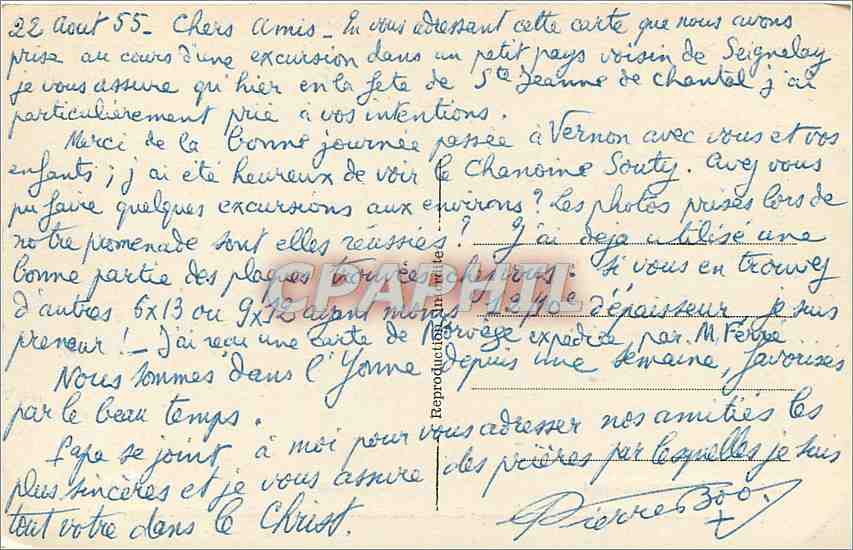 22 Aout 55 - Chers Amis - En vous adressant cette carte que nous avons
prise au cours d'une excursion dans un petit pays voisin de Seignelay
je vous assure qu'hier en la fete de Ste Jeanne de Chantal j'ai
particulièrement prié à vos intentions.
Merci de la bonne journée passée à Vernon avec vous et vos
enfants ; j'ai été heureux de voir le Chanoine Souty. Avez vous
pu faire quelques excursions aux environs ? Les photos prises lors de
notre promenade sont elles réussies ? J'ai deja utilisé une
bonne partie des plaques trouvées chez vous. Si vous en trouvez
d'autres 6x13 ou 9x12 ayant moins 12/10e d'épaisseur je suis
preneur ! - J'ai reçu une carte de Norvège expédiée par M. Ferré
Nous sommes dans l'Yonne depuis une semaine, favorisés
par le beau temps.
Papa se joint à moi pour vous adresser nos amitiés les
plus sincères et je vous assure des prières par lesquelles je suis
tout votre dans le Christ.
Pierre
Reproduction interdite
CPAPHIL